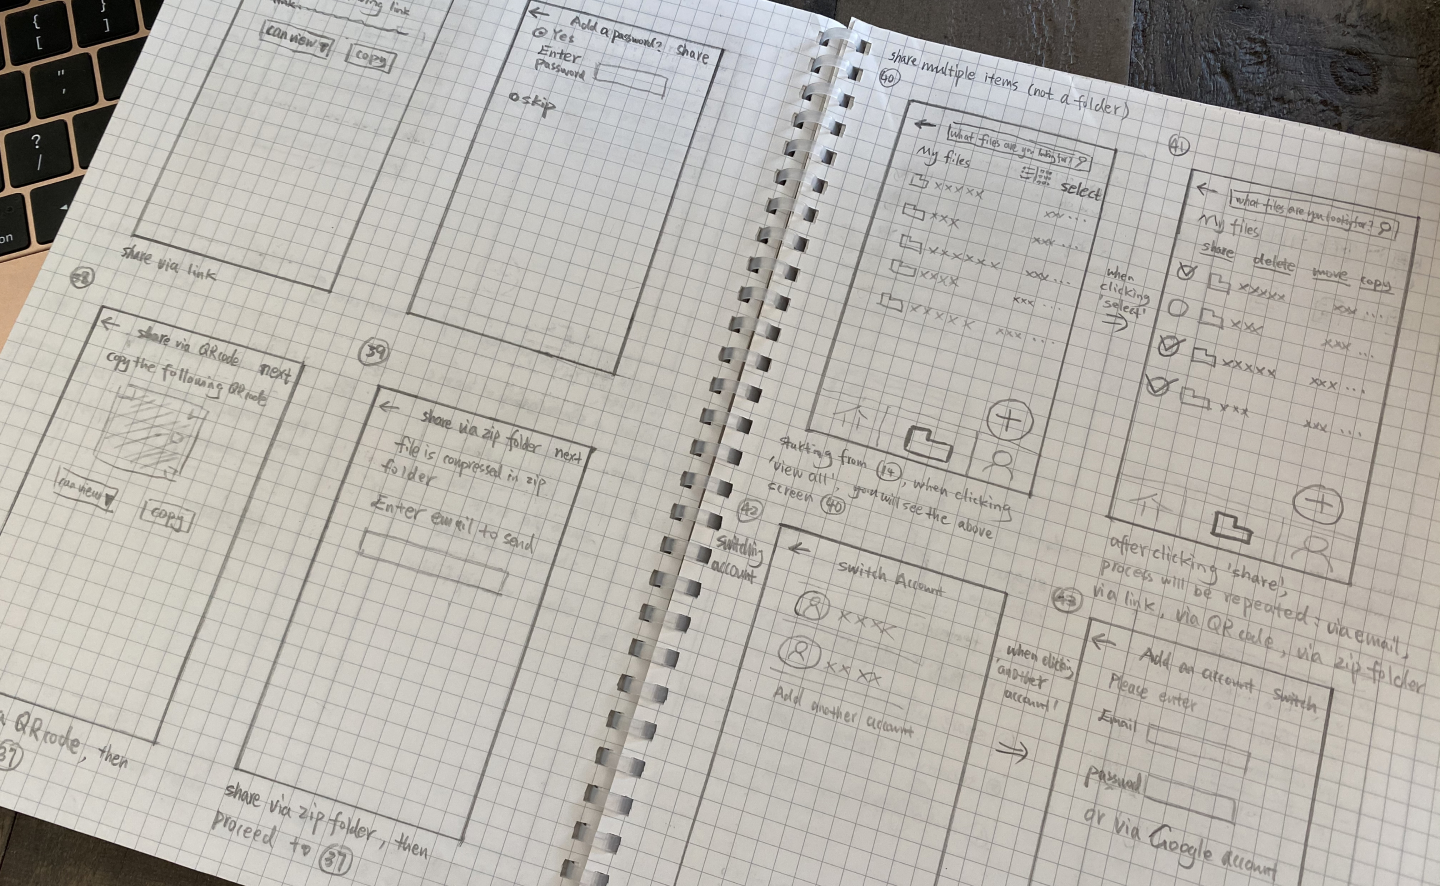 can view ▼
copy
share via link
← Add a password? share
Yes
Enter
Password
skip
38
← share via QR code next
copy the following QR code
can view ▼
copy
QR code, then
37
39
← share via zip folder next
file is compressed in zip
folder
Enter email to send
share via zip folder, then
proceed to 37
share multiple items (not a folder)
40
← what files are you looking for?
My files
select
xxxxx xxx ...
xxx xxx ...
xxxxxx xxx ...
xxxx xxx ...
xxxxx xxx ...
+
starting from 14, when clicking
'view all', you will see the above
screen 40
when
clicking
'select'
⇒
41
← what files are you looking for?
My files
share delete move copy
xxxxx xxx ...
xxx xxx ...
xxxxx xxx ...
xxx xxx ...
+
after clicking 'share',
process will be repeated; via email,
via link, via QR code, via zip folder
42
switching
account
←
switch Account
xxxx
xxxx
Add another account
when clicking
'another
account'
⇒
43
← Add an account switch
Please enter
Email
or via Google account